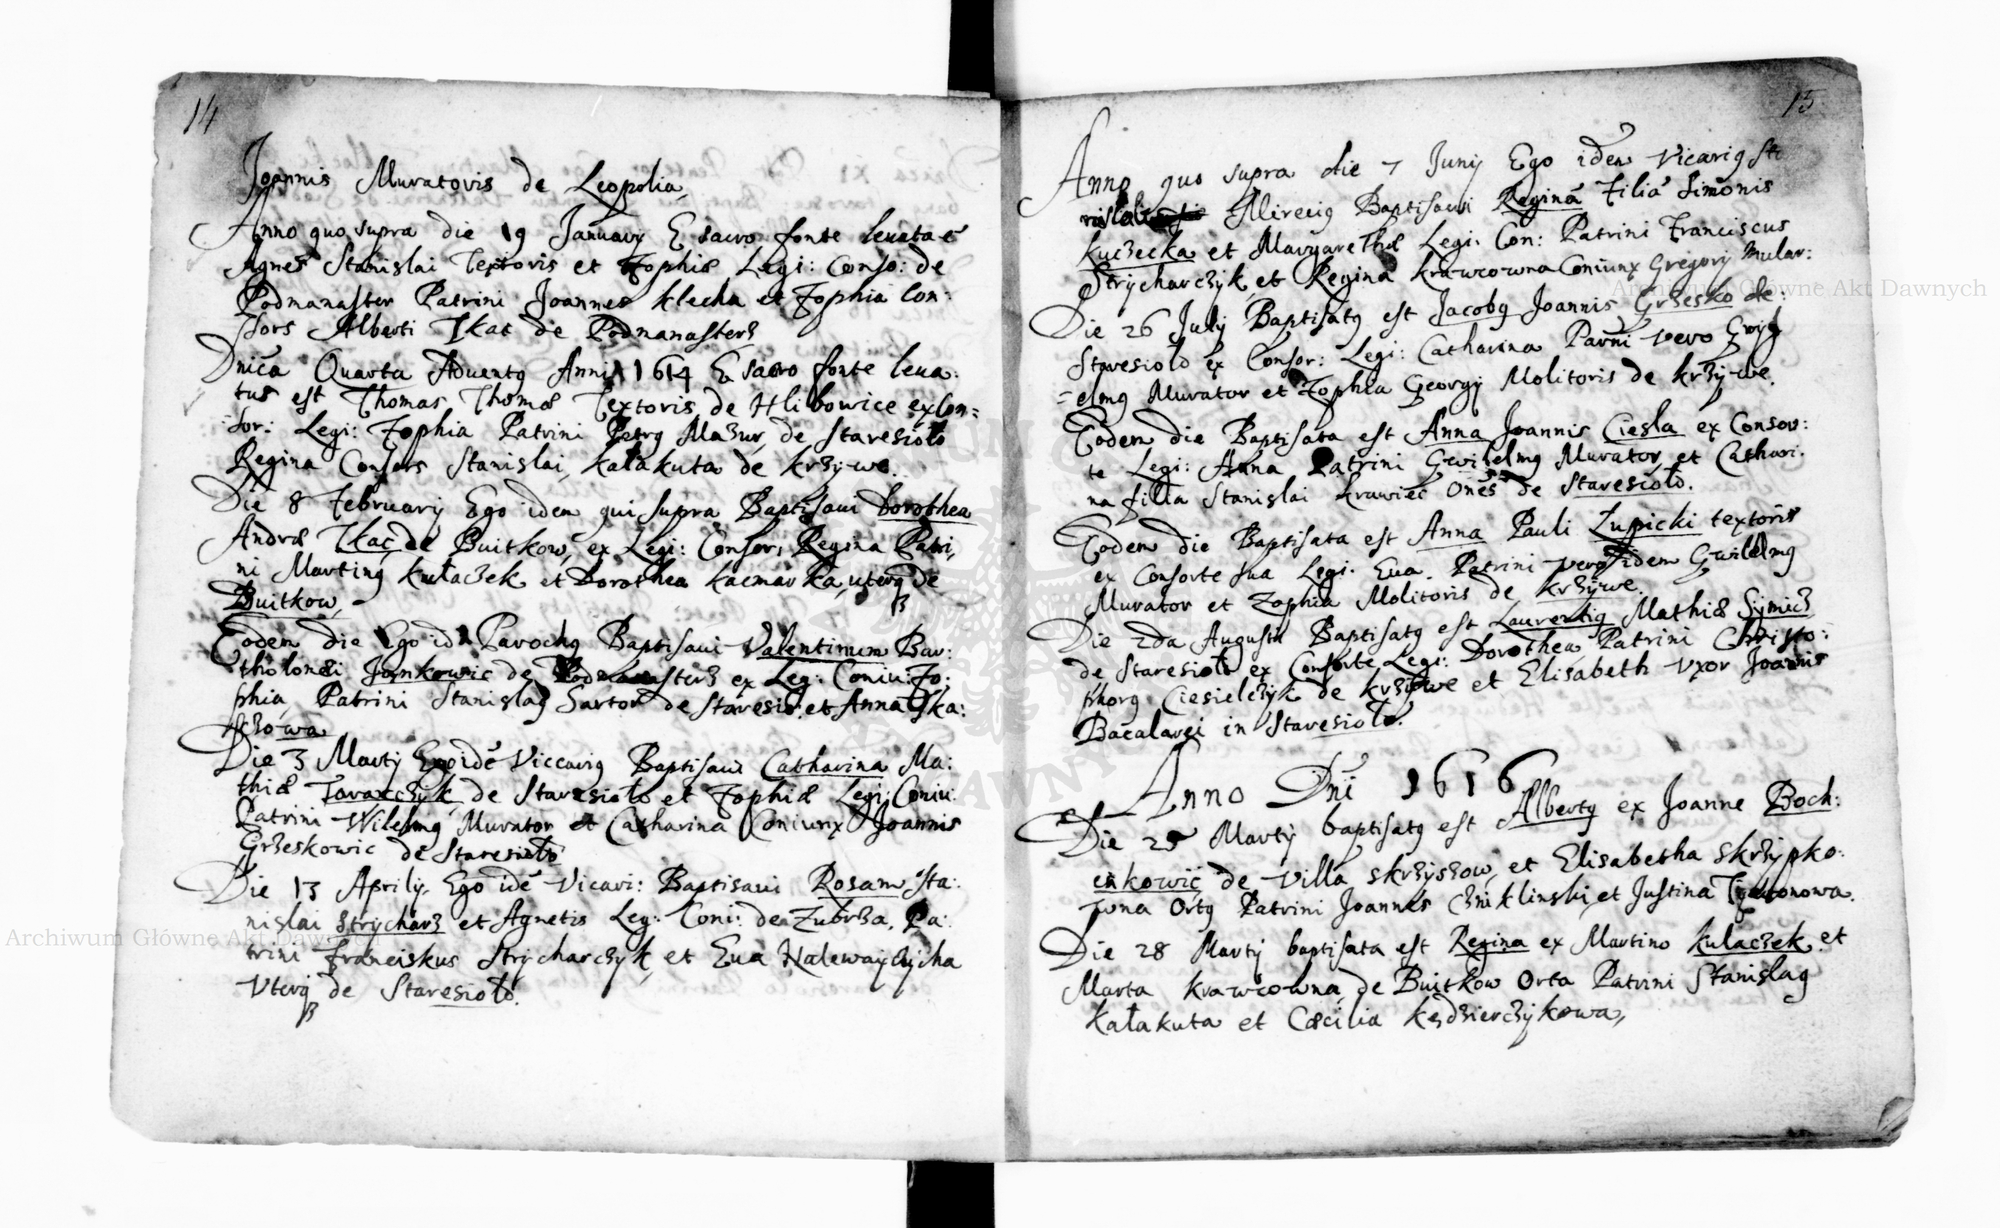 14
Joannis Muratoris de Leopolia
Anno quo supra die 19 January E sacro fonte leuata ẽ
Agnes Stanislai Textoris et Zophiæ Legi: Conso: de
Podmanaster Patrini Joannes Klecha et Zophia Con:
sors Alberti Tkac de Podmanasterz
Dnica Quarta Adventq Anni 1614 E sacro fonte leua:
tus est Thomas Thomæ Textoris de Hlibowice ex Con=
sor: Legi: Zophia Patrini Petrq Mazur de Staresioło
Regina Consors Stanislai Kałakuta de Krzywe.
Die 8 February Ego idem qui supra Baptisaui Dorothea
Andræ Tkac de Buitkow, ex Legi: Consor: Regina Patri,
ni Martinq Kułaczek et Dorothea Kacmarka, uterq de
Buitkow,
Eodem die Ego idē Parochq Baptisaui Valentinum Bar:
tholomæi Jankowic de Podmanasterz ex Leg: Coniu: Zo:
phia, Patrini Stanislaq Sartor de Staresio: et Anna Tka:
czowa
Die 3 Marty Ego idē Viccariq Baptisaui Catharina Ma:
thiæ Tovarczyk de Staresioło et Zophiæ Legi: Coniu:
Patrini Wilelmq Murator et Catharina Coniunx Joannis
Grzeskowic de Staresioło
Die 13 Aprily. Ego idē Vicari: Baptisaui Rosam Sta:
nislai Strycharz et Agnetis Leg: Coni: de Zubrza, Pa:
trini Franciskus Strycharczyk, et Eua Nalewaycycha
Vterq de Staresioło.
15
Anno quo supra die 7 Juny Ego idem Vicariq St:
nislaus Mireciq Baptisaui Reginā Filiā Simonis
Kuczecka et Margarethæ Legi: Con: Patrini Franciscus
Strycharczyk et Regina Krawcowna Coniunx Gregory Mular:
Die 26 July Baptisatq est Jacobq Joannis Grzesko de:
Staresioło ex Consor: Legi: Catharina Parni vero Gwil
=elmq Murator et Zophia Georgy Molitoris de Krzywe.
Eodem die Baptisata est Anna Joannis Ciesla ex Consor:
te Legi: Anna Patrini Gwilelmq Murator et Cathari:
na filia Stanislai Krawiec Onēs de Staresioło.
Eodem die Baptisata est Anna Pauli Zupicki textoris
ex Consorte sua Legi: Eua. Patrini vero idem Gwilelmq
Murator et Zophia Molitoris de Krzywe.
Die 2da Augusti Baptisatq est Laurentiq Mathiæ Symicz
de Staresioło ex Consorte Legi: Dorothea Patrini Christo:
phorq Ciesielczyk de Krzywe et Elisabeth Vxor Joannis
Bacalarei in Staresioło.
Anno Dni 1616
Die 25 Marty baptisatq est Albertq ex Joanne Boch:
enkowic de Villa Skrzyszow, et Elisabetha Skrzypko:
wna Ortq Patrini Joannes et Justina
Die 28 Marty baptisata est Regina ex Martino Kulaczek et
Marta Krawcowna de Buitkow Orta Patrini Stanislaq
Kałakuta et Cæcilia Kędzierzykowa,
Archiwum Główne Akt Dawnych
Archiwum Główne Akt Dawnych